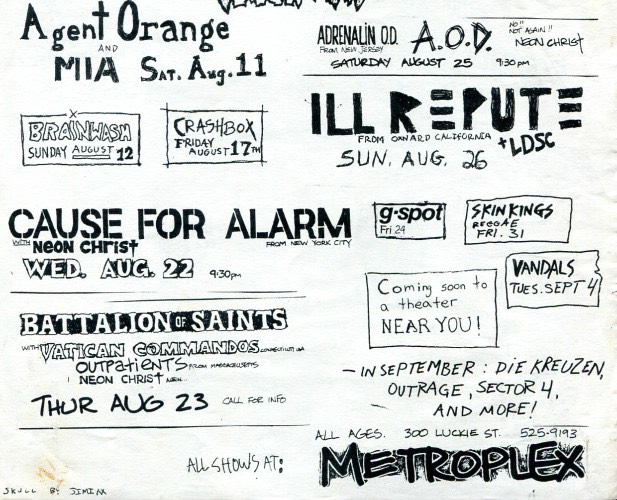 Agent Orange
AND
MIA SAT. AUG. 11
ADRENALIN O.D.
FROM NEW JERSEY
A.O.D.
NO!!
NOT AGAIN!!
NEON CHRIST
SATURDAY AUGUST 25 9:30pm
BRAINWASH
SUNDAY AUGUST 12
CRASHBOX
FRIDAY
AUGUST 17TH
ILL REPUTE
FROM OXNARD CALIFORNIA
+ LDSC
SUN. AUG. 26
CAUSE FOR ALARM
WITH NEON CHRIST FROM NEW YORK CITY
WED. AUG. 22 9:30pm
g-spot
Fri 24
SKIN KINGS
REGGAE
FRI. 31
Coming soon to
a theater
NEAR YOU!
VANDALS
TUES. SEPT 4
BATTALION OF SAINTS
WITH VATICAN COMMANDOS CONNECTICUT USA
OUTPATIENTS FROM MASSACHUSETTS
NEON CHRIST
THUR AUG 23 CALL FOR INFO
— IN SEPTEMBER : DIE KREUZEN,
OUTRAGE, SECTOR 4,
AND MORE!
ALL AGES. 300 LUCKIE ST. 525-9193
ALL SHOWS AT:
METROPLEX
SKULL BY JIMI AX